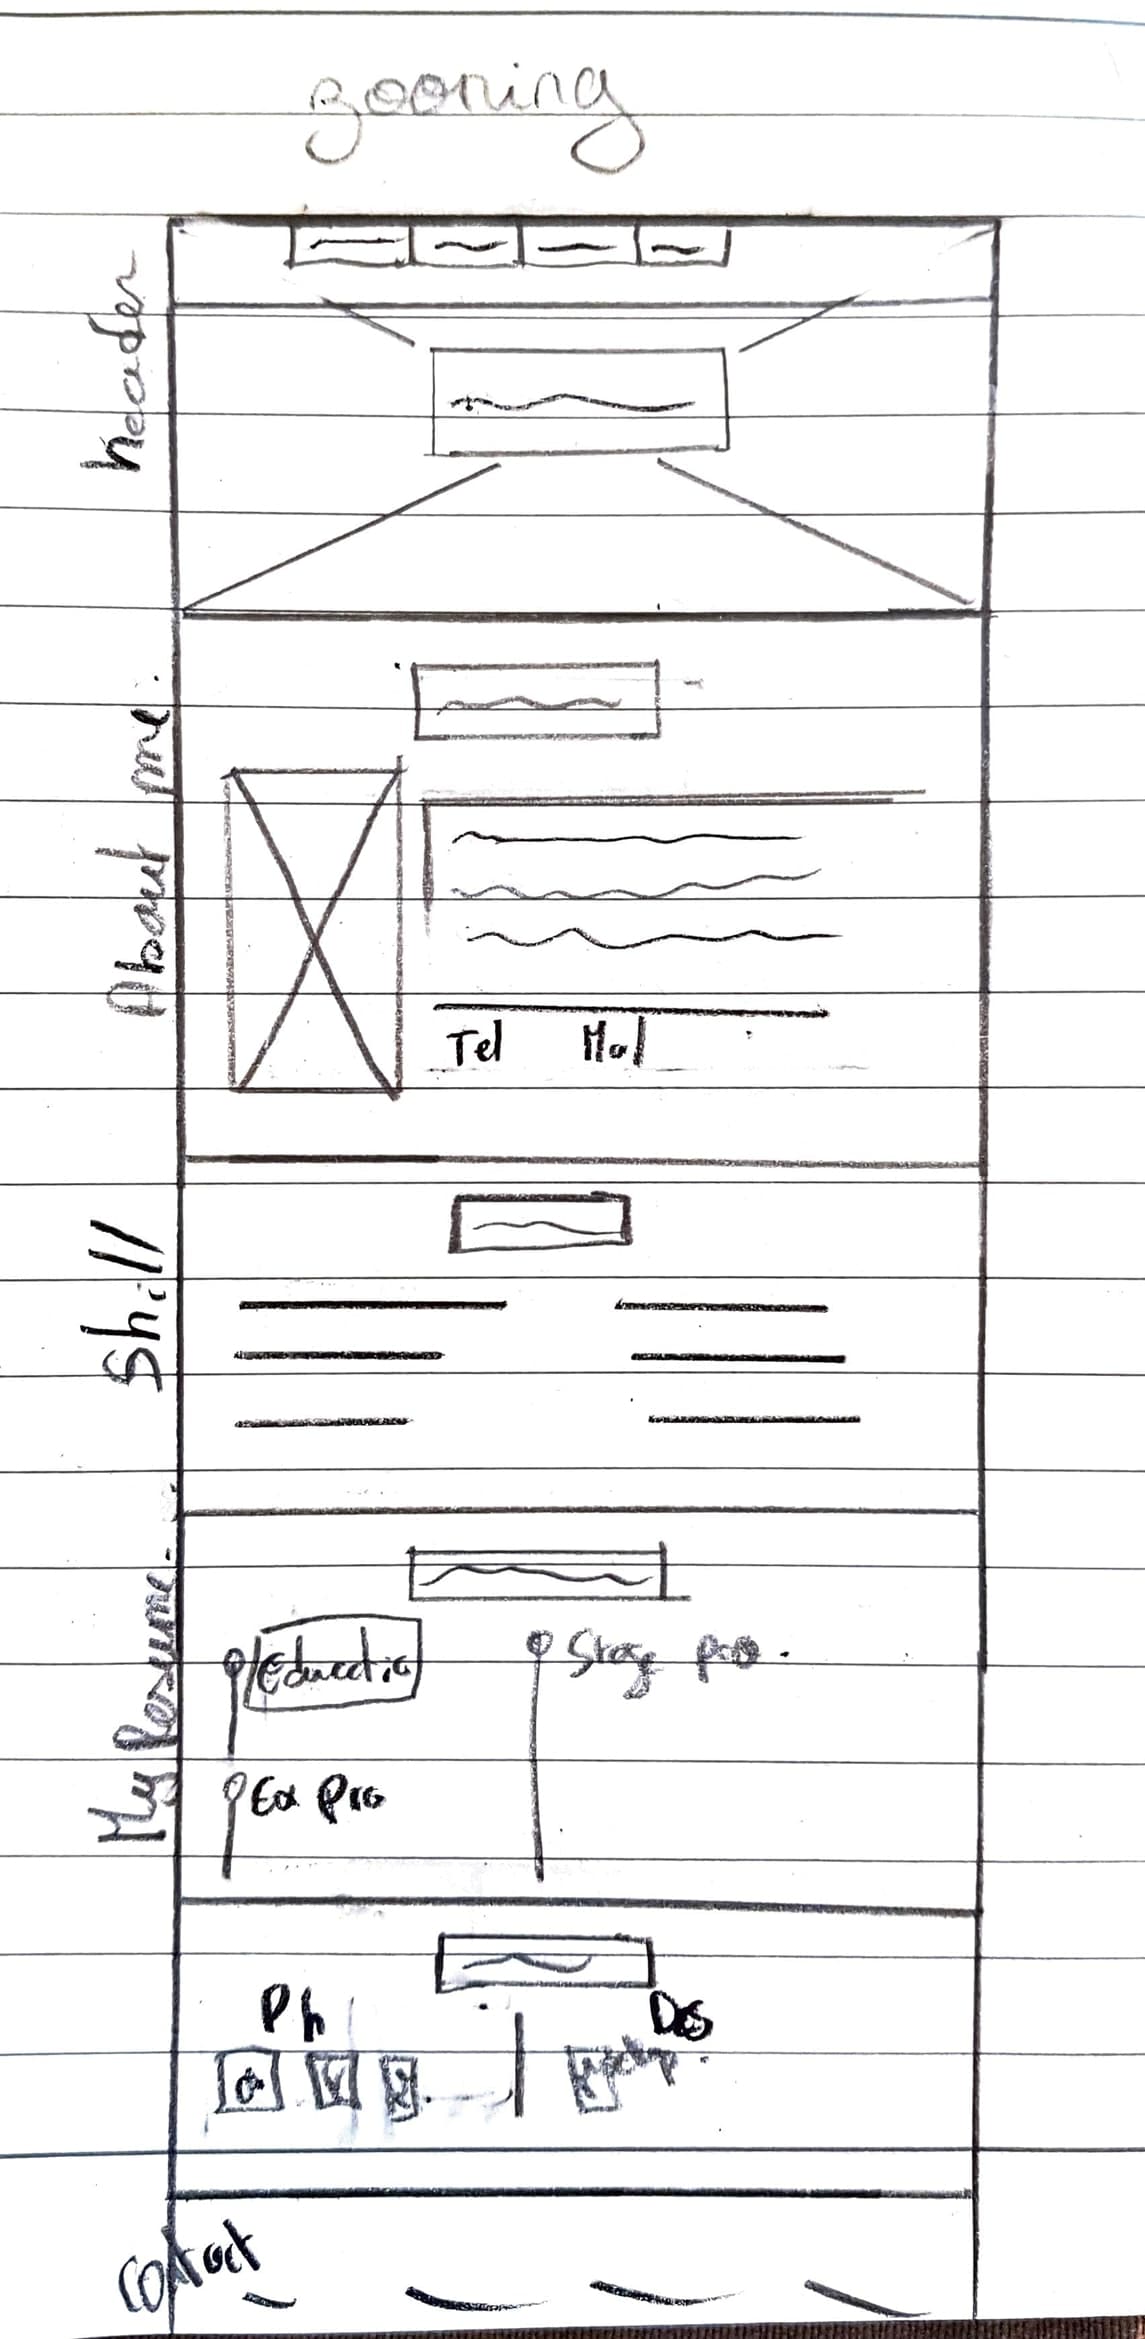 zooning
header
About me.
Tel Mal
Skill
My Resume.
Educatio
Stag pro.
Ex Pro
Ph
Des
contact